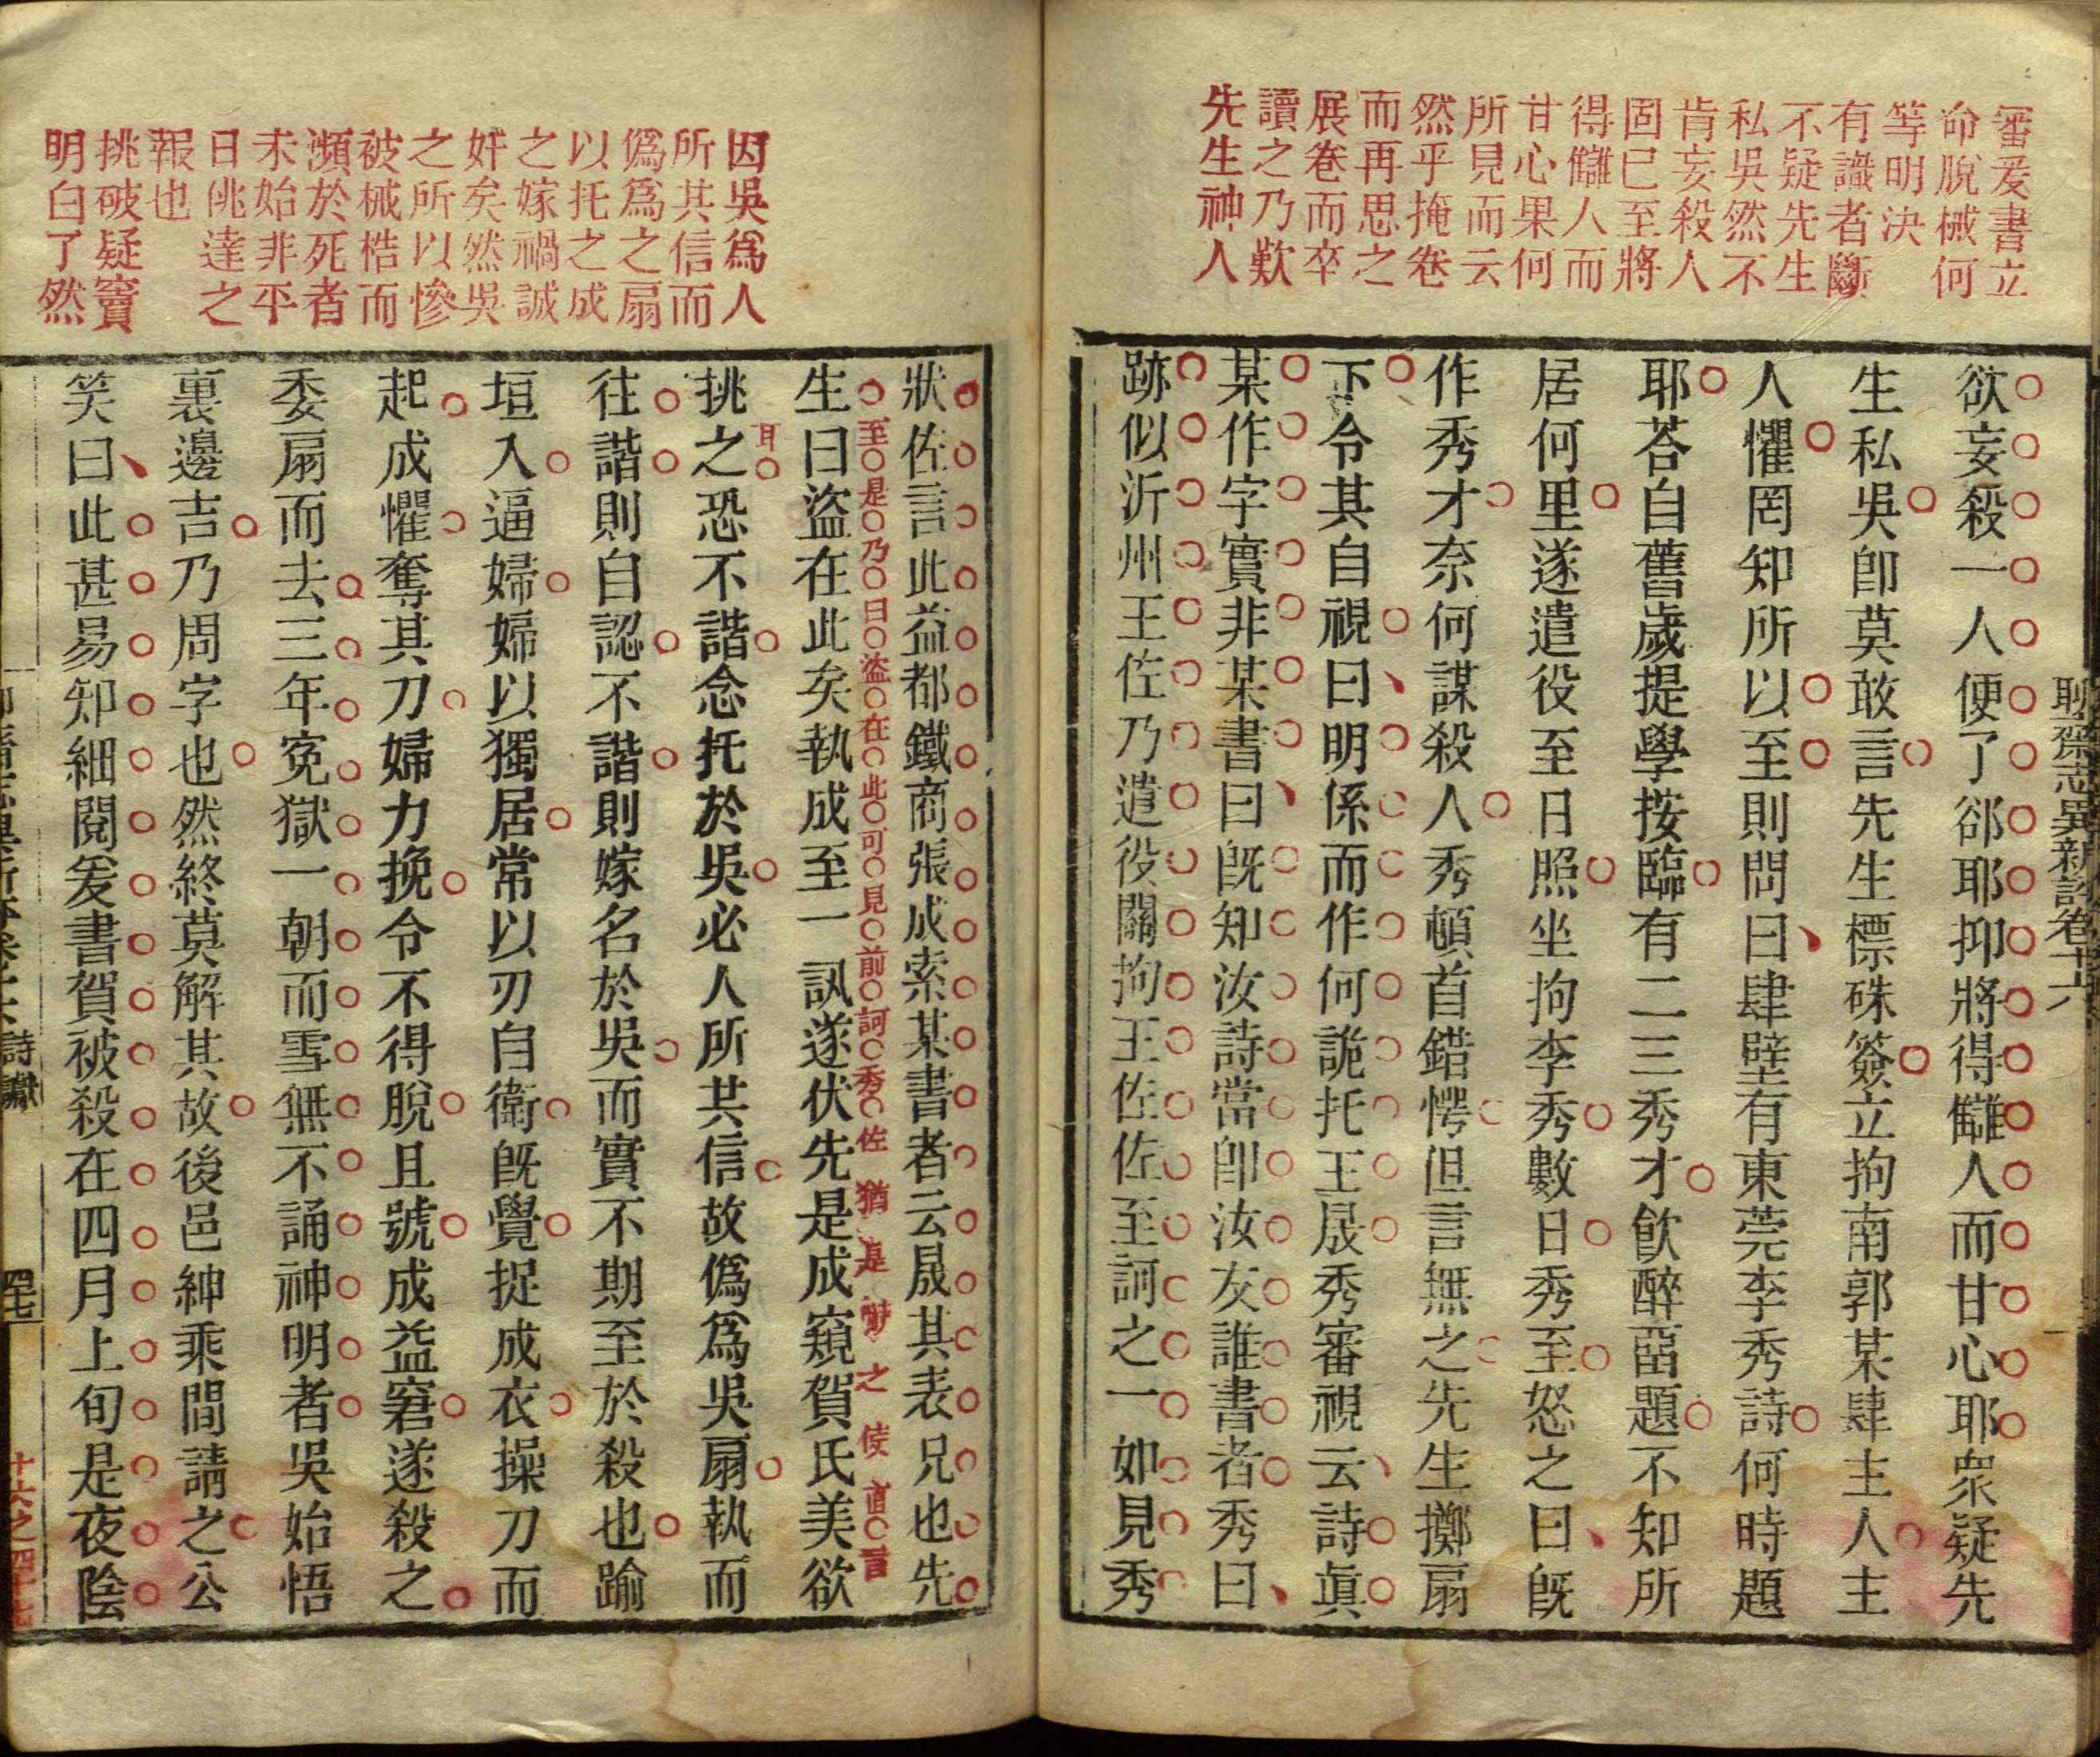 審爰書立
命脫械何
等明決
有識者斷
不疑先生
私吳然不
肯妄殺人
固已至將
得讎人而
甘心果何
所見而云
然乎掩卷
而再思之
展卷而卒
讀之乃歎
先生神人
聊齋志異新評卷十六
欲妄殺一人便了郤耶抑將得讎人而甘心耶眾疑先
生私吳卽莫敢言先生標硃簽立拘南郭某肆主人主
人懼罔知所以至則問曰肆壁有東莞李秀詩何時題
耶荅自舊歲提學按臨有二三秀才飮醉畱題不知所
居何里遂遣役至日照坐拘李秀數日秀至怒之曰旣
作秀才奈何謀殺人秀頓首錯愕但言無之先生擲扇
下令其自視曰明係而作何詭托王晟秀審視云詩眞
某作字實非某書曰旣知汝詩當卽汝友誰書者秀曰
跡似沂州王佐乃遣役關拘王佐佐至訶之一如見秀
因吳爲人
所其信而
僞爲之扇
以托之成
之嫁禍誠
奸矣然吳
之所以慘
被械梏而
瀕於死者
未始非平
日佻達之
報也
挑破疑竇
明白了然
狀佐言此益都鐵商張成索某書者云晟其表兄也先
至是乃曰盜在此可見前訶秀佐猶是之使直言
生曰盜在此矣執成至一訊遂伏先是成窺賀氏美欲
耳
挑之恐不諧念托於吳必人所共信故僞爲吳扇執而
往諧則自認不諧則嫁名於吳而實不期至於殺也踰
垣入逼婦婦以獨居常以刃自衛旣覺捉成衣操刀而
起成懼奪其刀婦力挽令不得脫且號成益窘遂殺之
委扇而去三年寃獄一朝而雪無不誦神明者吳始悟
裏邊吉乃周字也然終莫解其故後邑紳乘間請之公
笑曰此甚易知細閱爰書賀被殺在四月上旬是夜陰
詩讞
四十七
十六之四十七